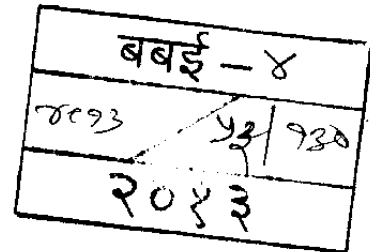 बबई - ४
४८९३ ५३/१३०
२०१३